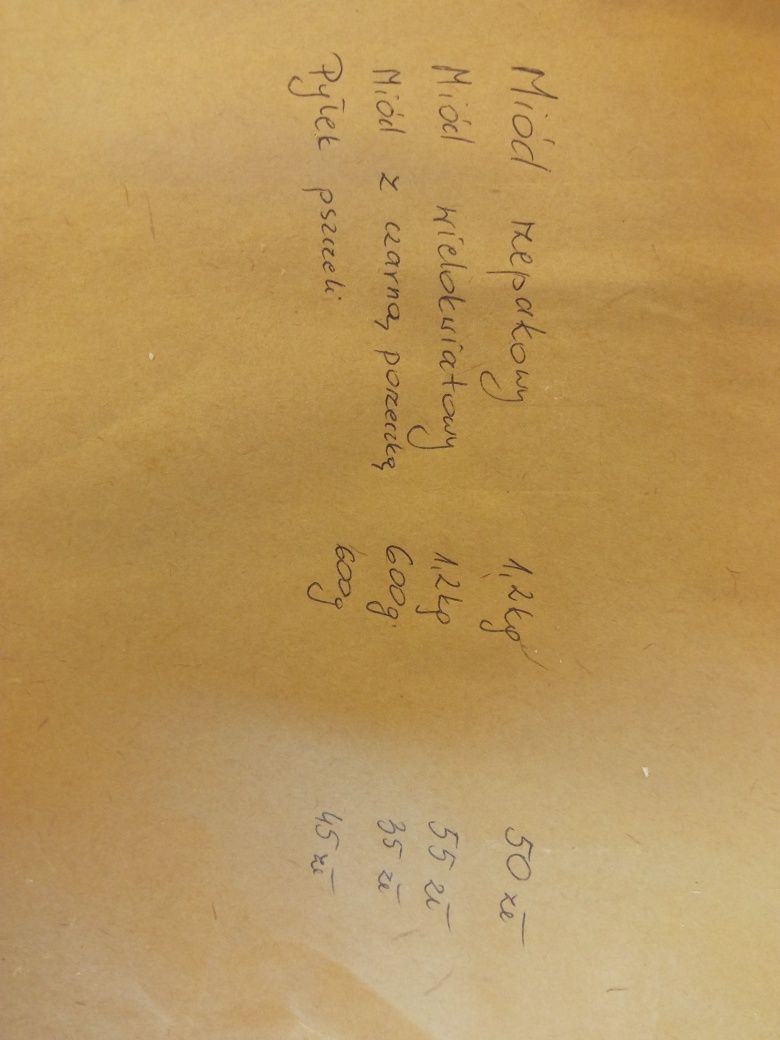 Miód rzepakowy 1,2kg 50 zł
Miód wielokwiatowy 1,2kg 55 zł
Miód z czarną porzeczką 600g 35 zł
Pyłek pszczeli 600g 45 zł